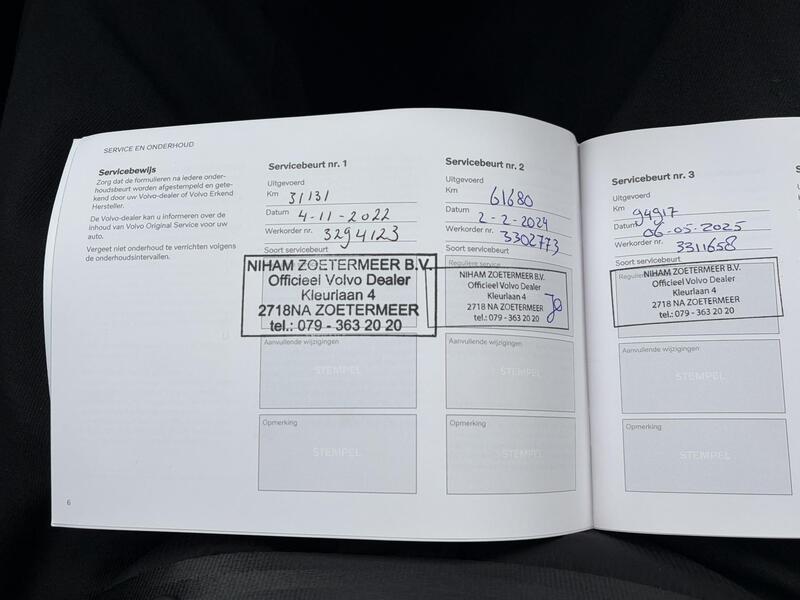 SERVICE EN ONDERHOUD
Servicebewijs
Zorg dat de formulieren na iedere onder-
houdsbeurt worden afgestempeld en gete-
kend door uw Volvo-dealer of Volvo Erkend
Hersteller.
De Volvo-dealer kan u informeren over de
inhoud van Volvo Original Service voor uw
auto.
Vergeet niet onderhoud te verrichten volgens
de onderhoudsintervallen.
6
Servicebeurt nr. 1
Uitgevoerd
Km 31131
Datum 4-11-2022
Werkorder nr. 3294123
Soort servicebeurt
NIHAM ZOETERMEER B.V.
Officieel Volvo Dealer
Kleurlaan 4
2718NA ZOETERMEER
tel.: 079 - 363 20 20
Aanvullende wijzigingen
STEMPEL
Opmerking
STEMPEL
Servicebeurt nr. 2
Uitgevoerd
Km 61680
Datum 2-2-2024
Werkorder nr. 3302773
Soort servicebeurt
Reguliere service
NIHAM ZOETERMEER B.V.
Officieel Volvo Dealer
Kleurlaan 4
2718NA ZOETERMEER
tel.: 079 - 363 20 20
Aanvullende wijzigingen
STEMPEL
Opmerking
STEMPEL
Servicebeurt nr. 3
Uitgevoerd
Km 94917
Datum 06-05-2025
Werkorder nr. 3311658
Soort servicebeurt
NIHAM ZOETERMEER B.V.
Officieel Volvo Dealer
Kleurlaan 4
2718NA ZOETERMEER
tel.: 079 - 363 20 20
Aanvullende wijzigingen
STEMPEL
Opmerking
STEMPEL